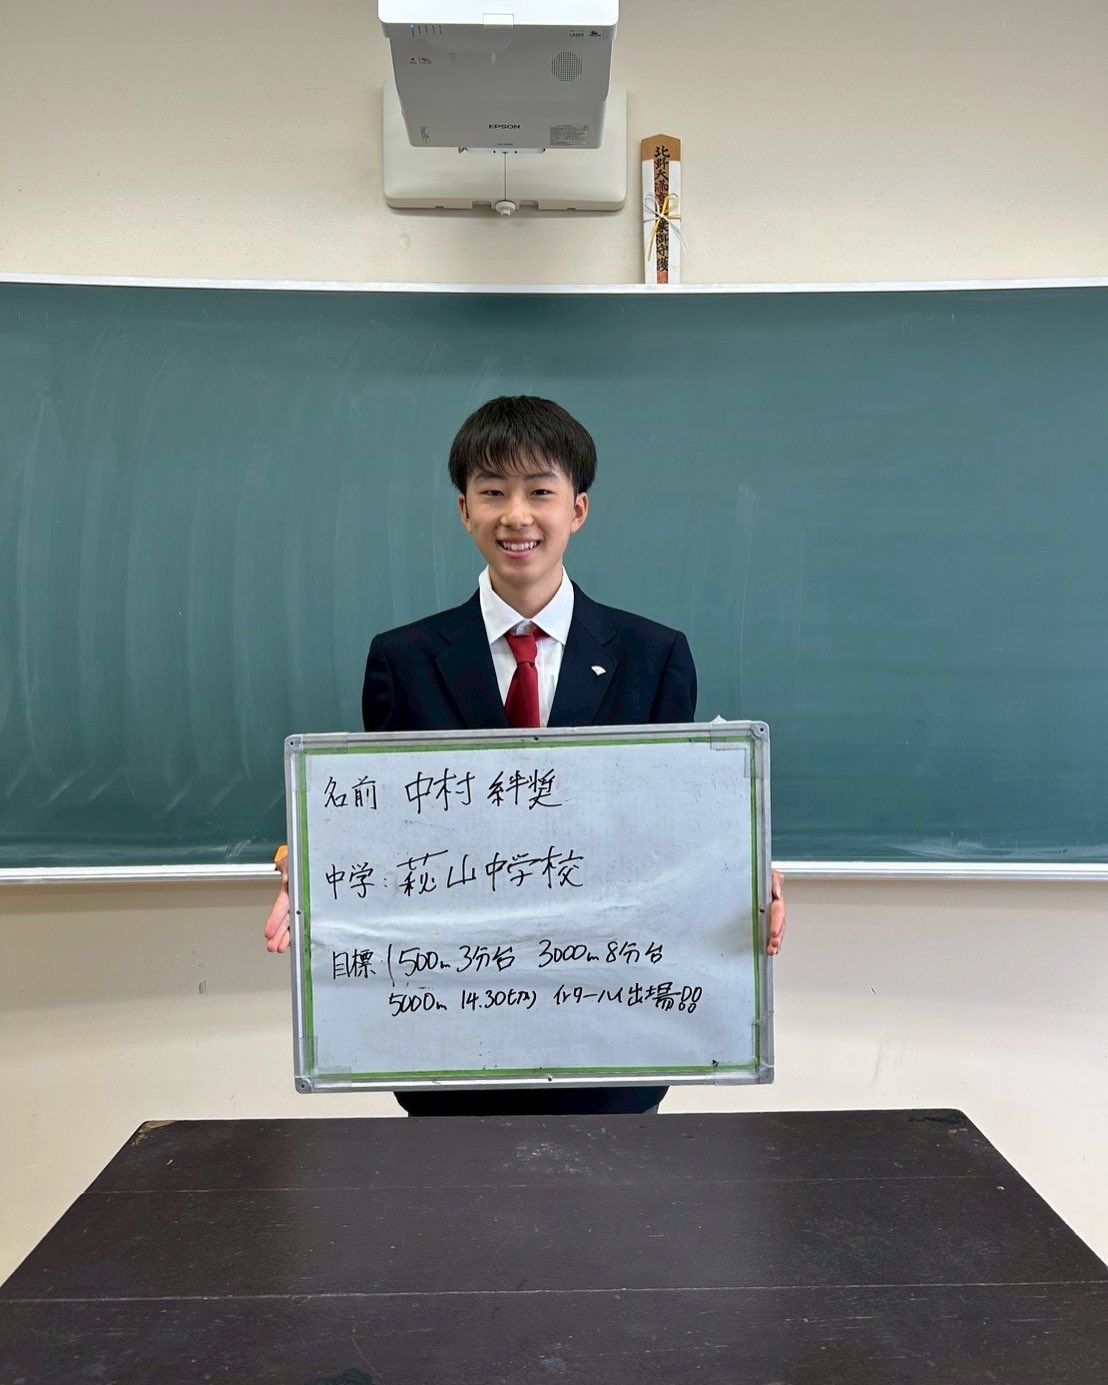 EPSON
北野天満宮
御守護
名前 中村 絆奨
中学: 萩山中学校
目標: 1500m 3分台 3000m 8分台
5000m 14.30切り インターハイ出場!!